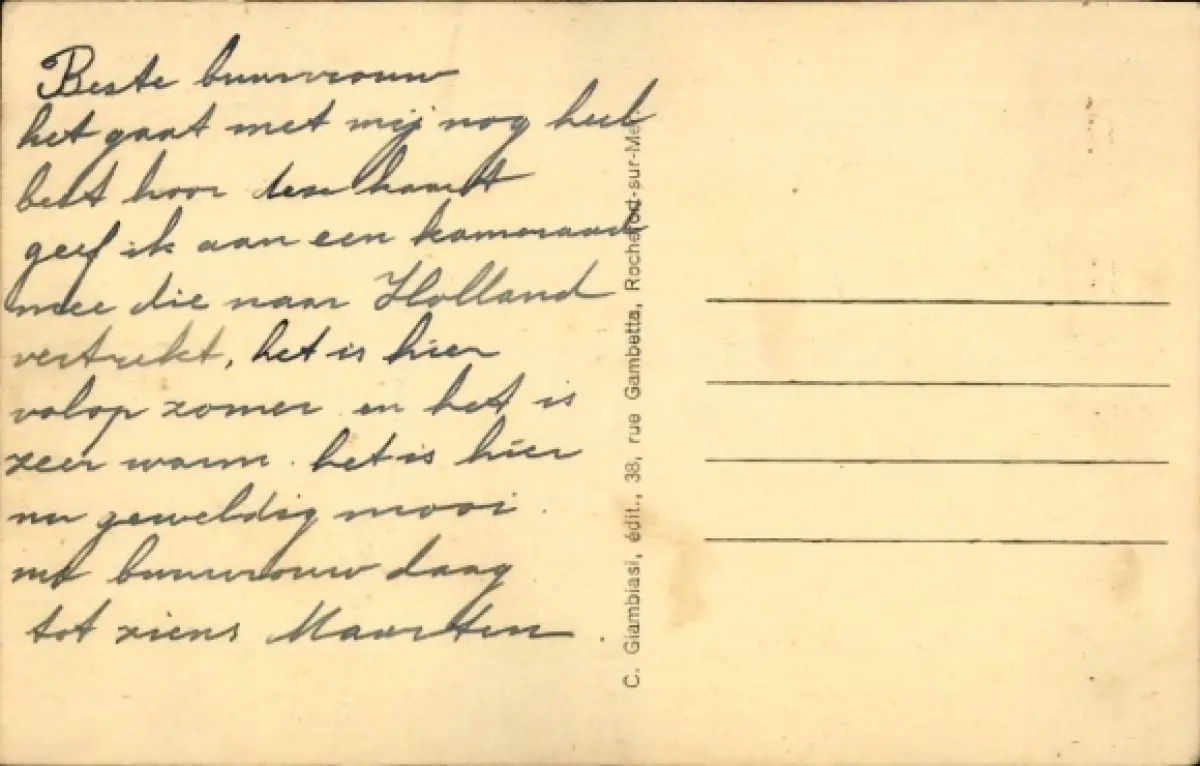 Beste buurvrouw
het gaat met mij nog heel
best hoor deze kaart
geef ik aan een kameraad
mee die naar Holland
vertrekt, het is hier
volop zomer en het is
zeer warm. het is hier
nu geweldig mooi.
buurvrouw daag
tot ziens Maarten.
C. Giambiasi, édit., 38, rue Gambetta, Rochefort-sur-Me